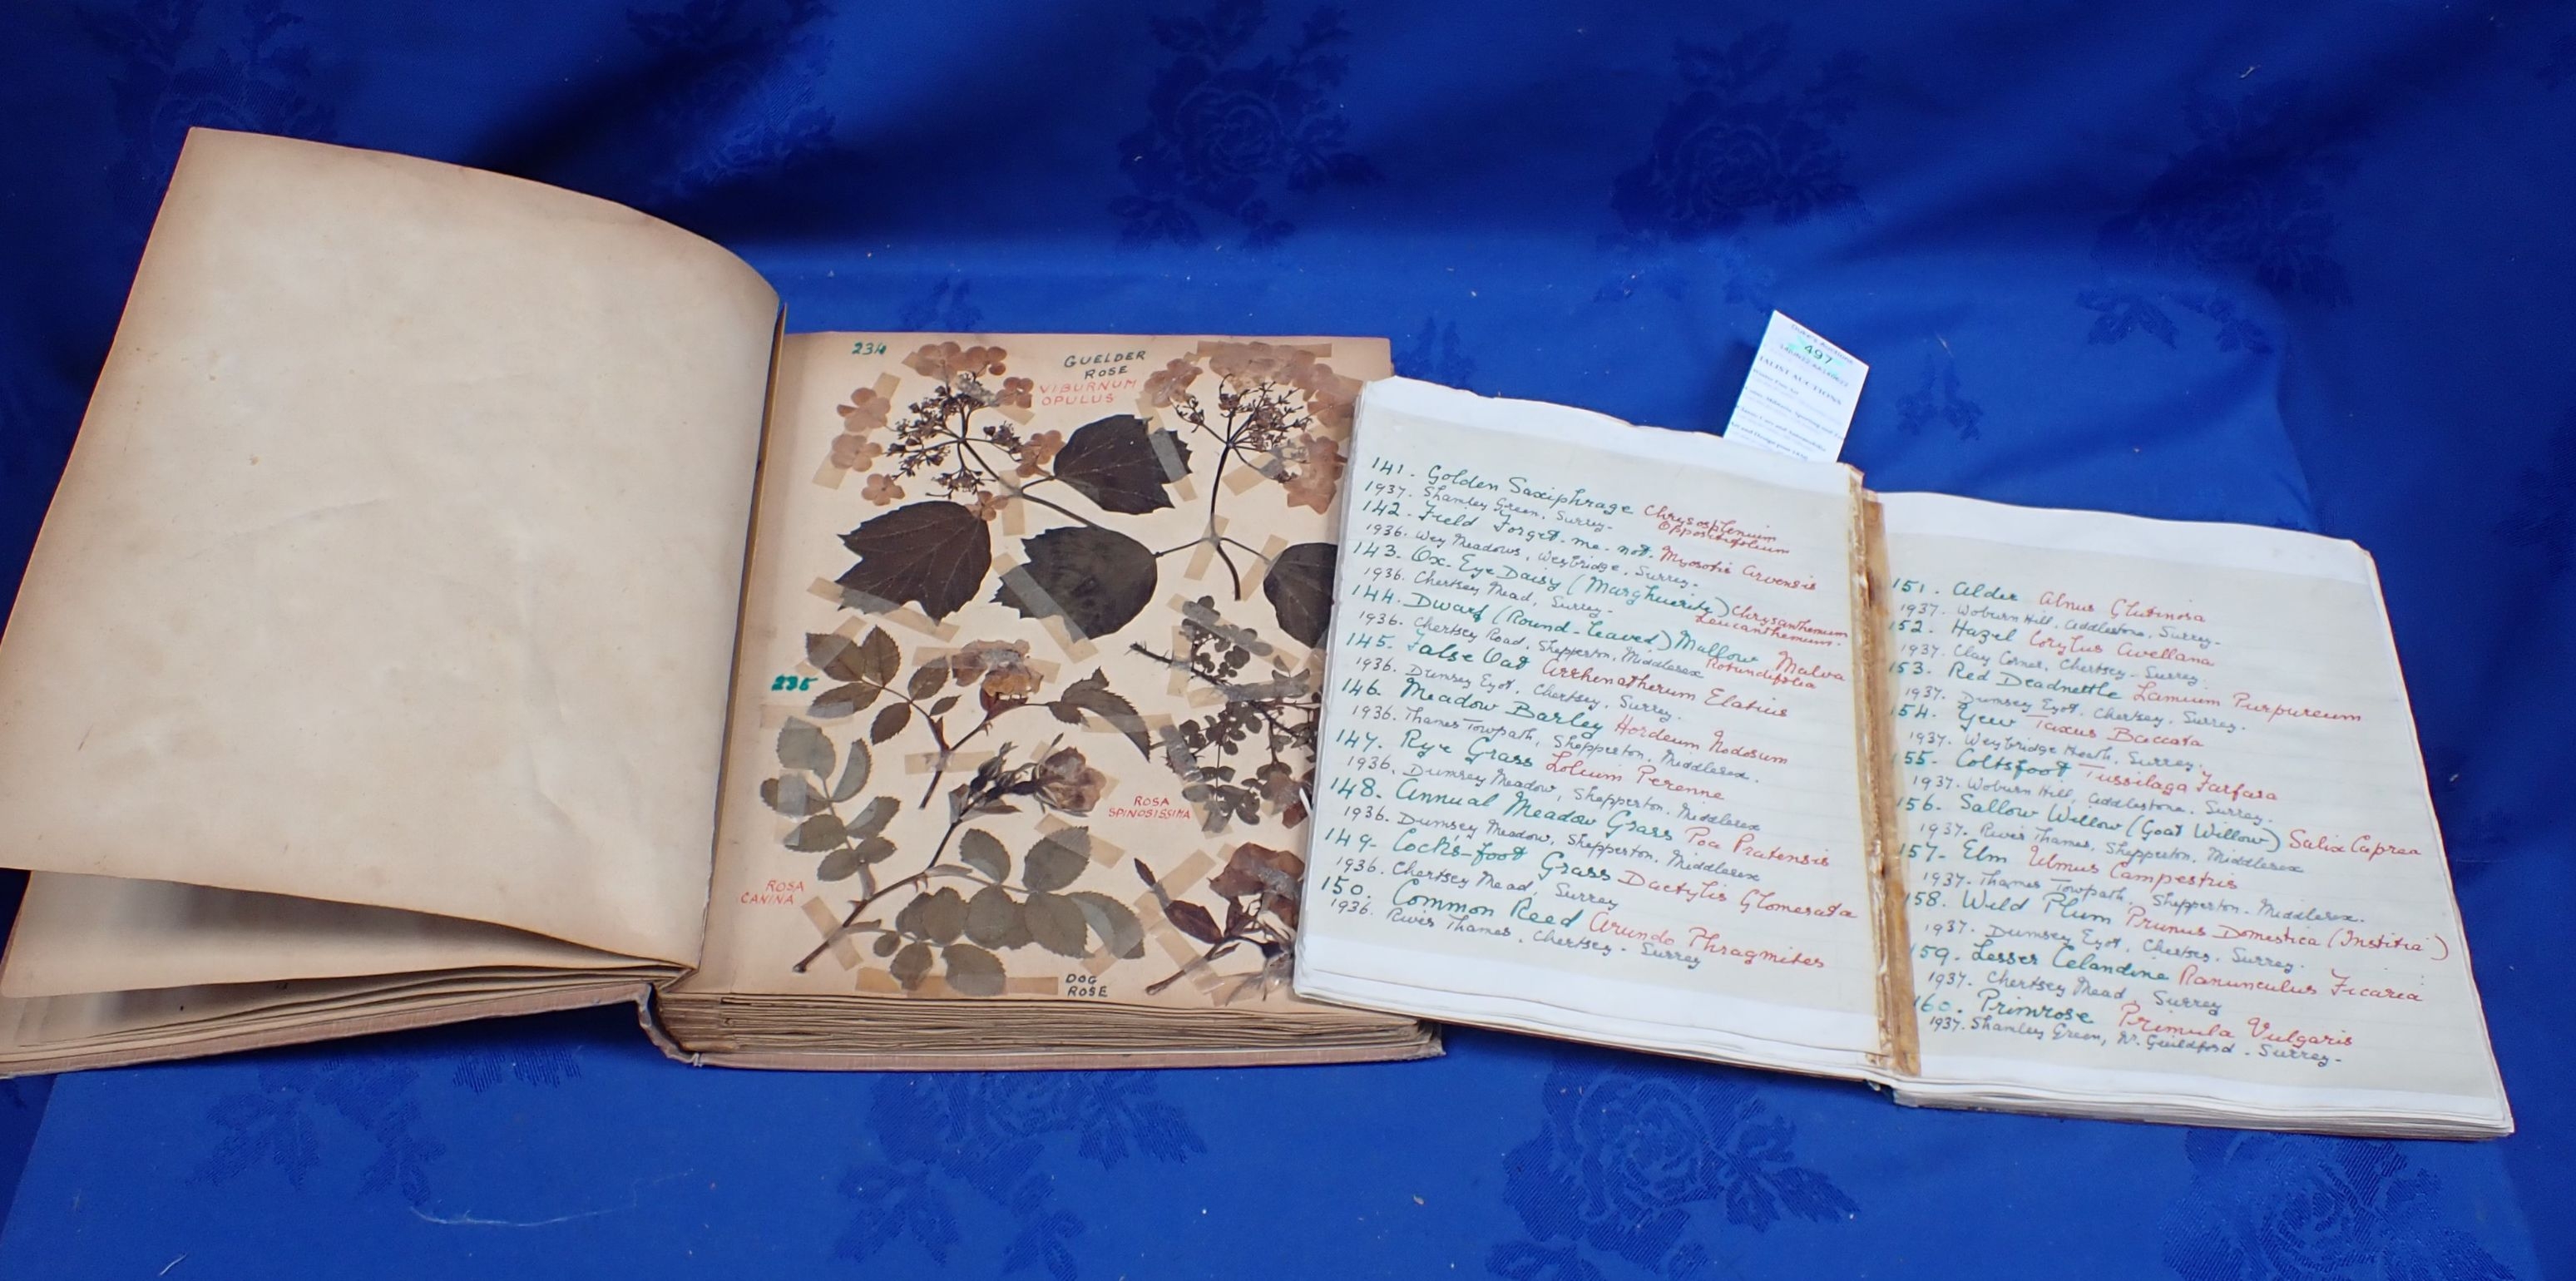 234
GUELDER
ROSE
VIBURNUM
OPULUS
235
ROSA
SPINOSISSIMA
ROSA
CANINA
DOG
ROSE
497
141. Golden Saxiphrage Chrysosplenium
Oppositifolium
1937. Shamley Green, Surrey.
142. Field Forget-me-not. Myosotis Arvensis
1936. Wey Meadows, Weybridge, Surrey.
143. Ox-Eye Daisy (Marghuerite) Chrysanthemum
Leucanthemum.
1936. Chertsey Mead, Surrey.
144. Dwarf (Round-leaved) Mallow Malva
Rotundifolia
1936. Chertsey Road, Shepperton, Middlesex
145. False Oat Arrhenatherum Elatius
1936. Dumsey Eyot, Chertsey, Surrey.
146. Meadow Barley Hordeum Nodosum
1936. Thames Towpath, Shepperton, Middlesex.
147. Rye Grass Lolium Perenne
1936. Dumsey Meadow, Shepperton, Middlesex
148. Annual Meadow Grass Poa Pratensis
1936. Dumsey Meadow, Shepperton, Middlesex
149- Cocks-foot Grass Dactylis Glomerata
1936. Chertsey Mead, Surrey
150. Common Reed Arundo Phragmites
1936. River Thames, Chertsey - Surrey
151. Alder Alnus Glutinosa
1937. Woburn Hill, Addlestone, Surrey-
152. Hazel Corylus Avellana
1937. Clay Corner, Chertsey - Surrey.
153. Red Deadnettle Lamium Purpureum
1937. Dumsey Eyot, Chertsey, Surrey.
154. Yew Taxus Baccata
1937. Weybridge Heath, Surrey.
155. Coltsfoot Tussilago Farfara
1937. Woburn Hill, Addlestone, Surrey.
156. Sallow Willow (Goat Willow) Salix Caprea
1937. River Thames, Shepperton, Middlesex
157- Elm Ulmus Campestris
1937. Thames Towpath, Shepperton. Middlesex.
158. Wild Plum Prunus Domestica (Institia)
1937. Dumsey Eyot, Chertsey, Surrey.
159. Lesser Celandine Ranunculus Ficaria
1937. Chertsey Mead, Surrey
160. Primrose Primula Vulgaris
1937. Shamley Green, Nr. Guildford. Surrey-